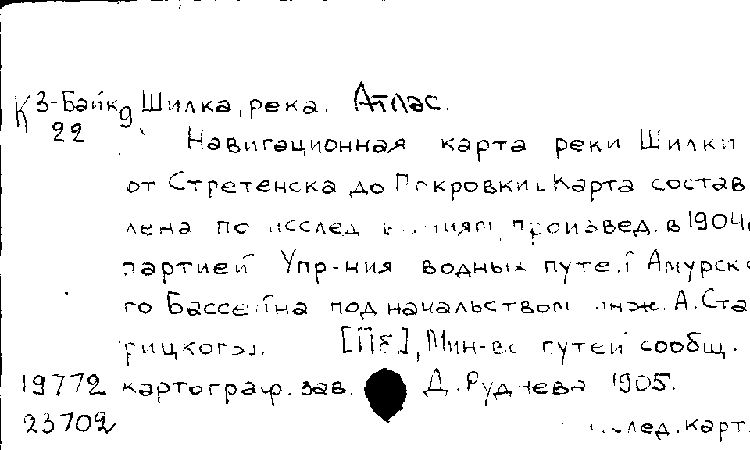 К 3-Байк 9 Шилка, река. Атлас.
22 Навигационная карта реки Шилки
от Стретенска до Покровки. Карта состав
лена по исслед произвед. в 1904
партией Упр-ния водных путей Амурско
го Бассейна под начальством инж. А. Ста
рицкого. [Пб.], Мин-во путей сообщ.
19772 картограф. зав. Д. Руднева 1905.
23702 след. карт.